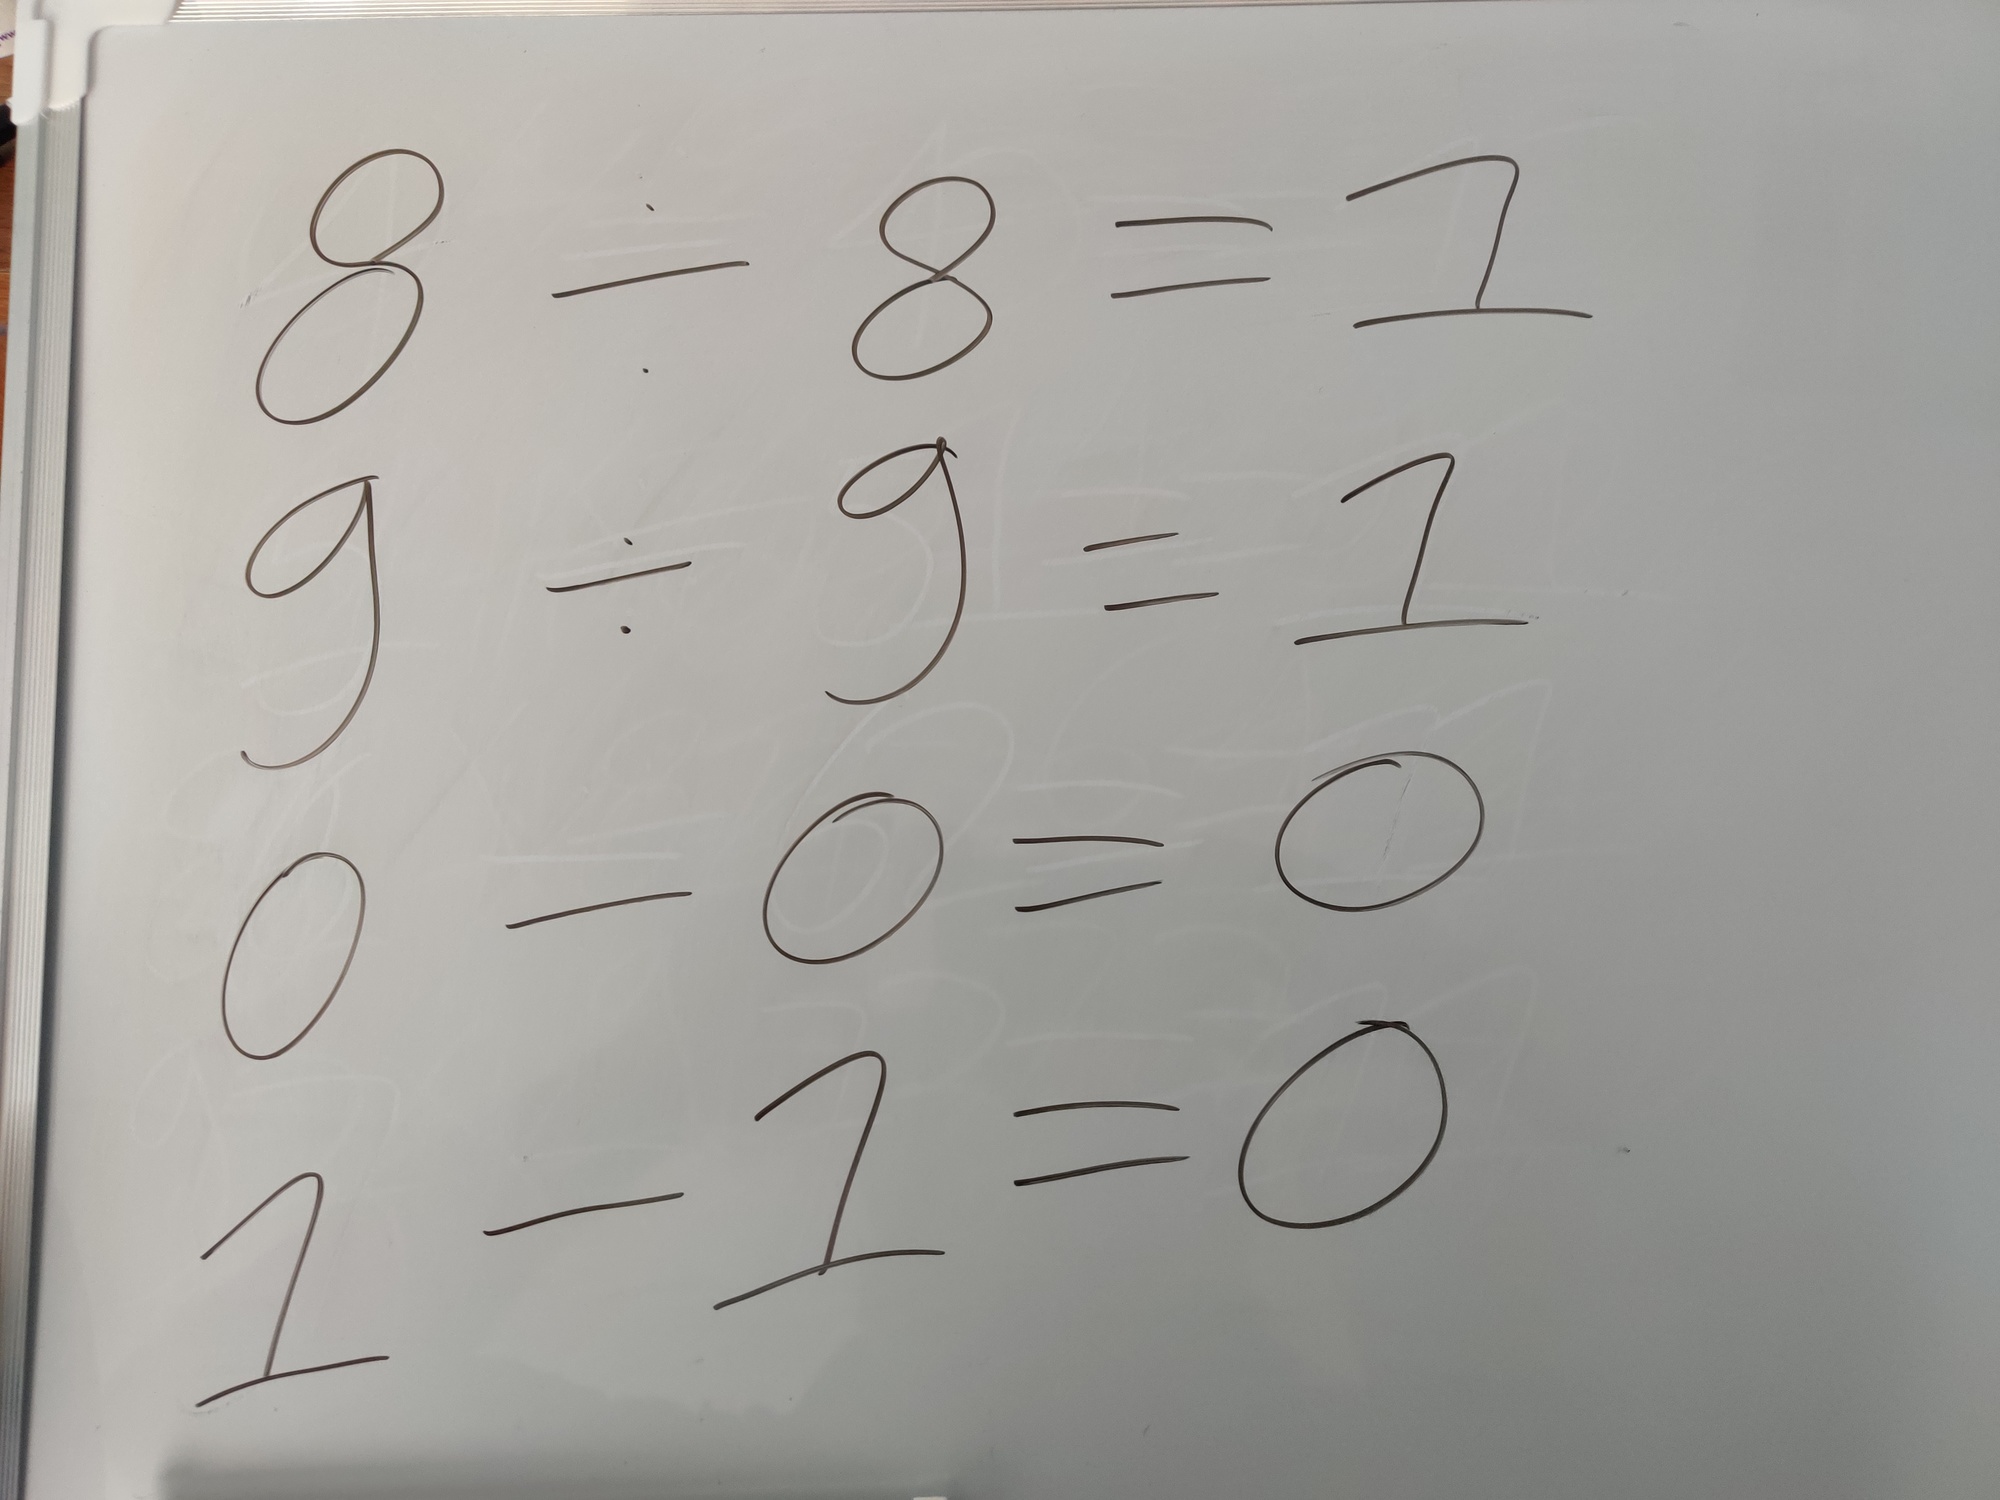 8 ÷ 8 = 1
9 ÷ 9 = 1
0 - 0 = 0
1 - 1 = 0